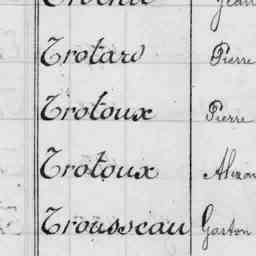 Trotard Pierre
Trotoux Pierre
Trotoux
Trousseau Gaston